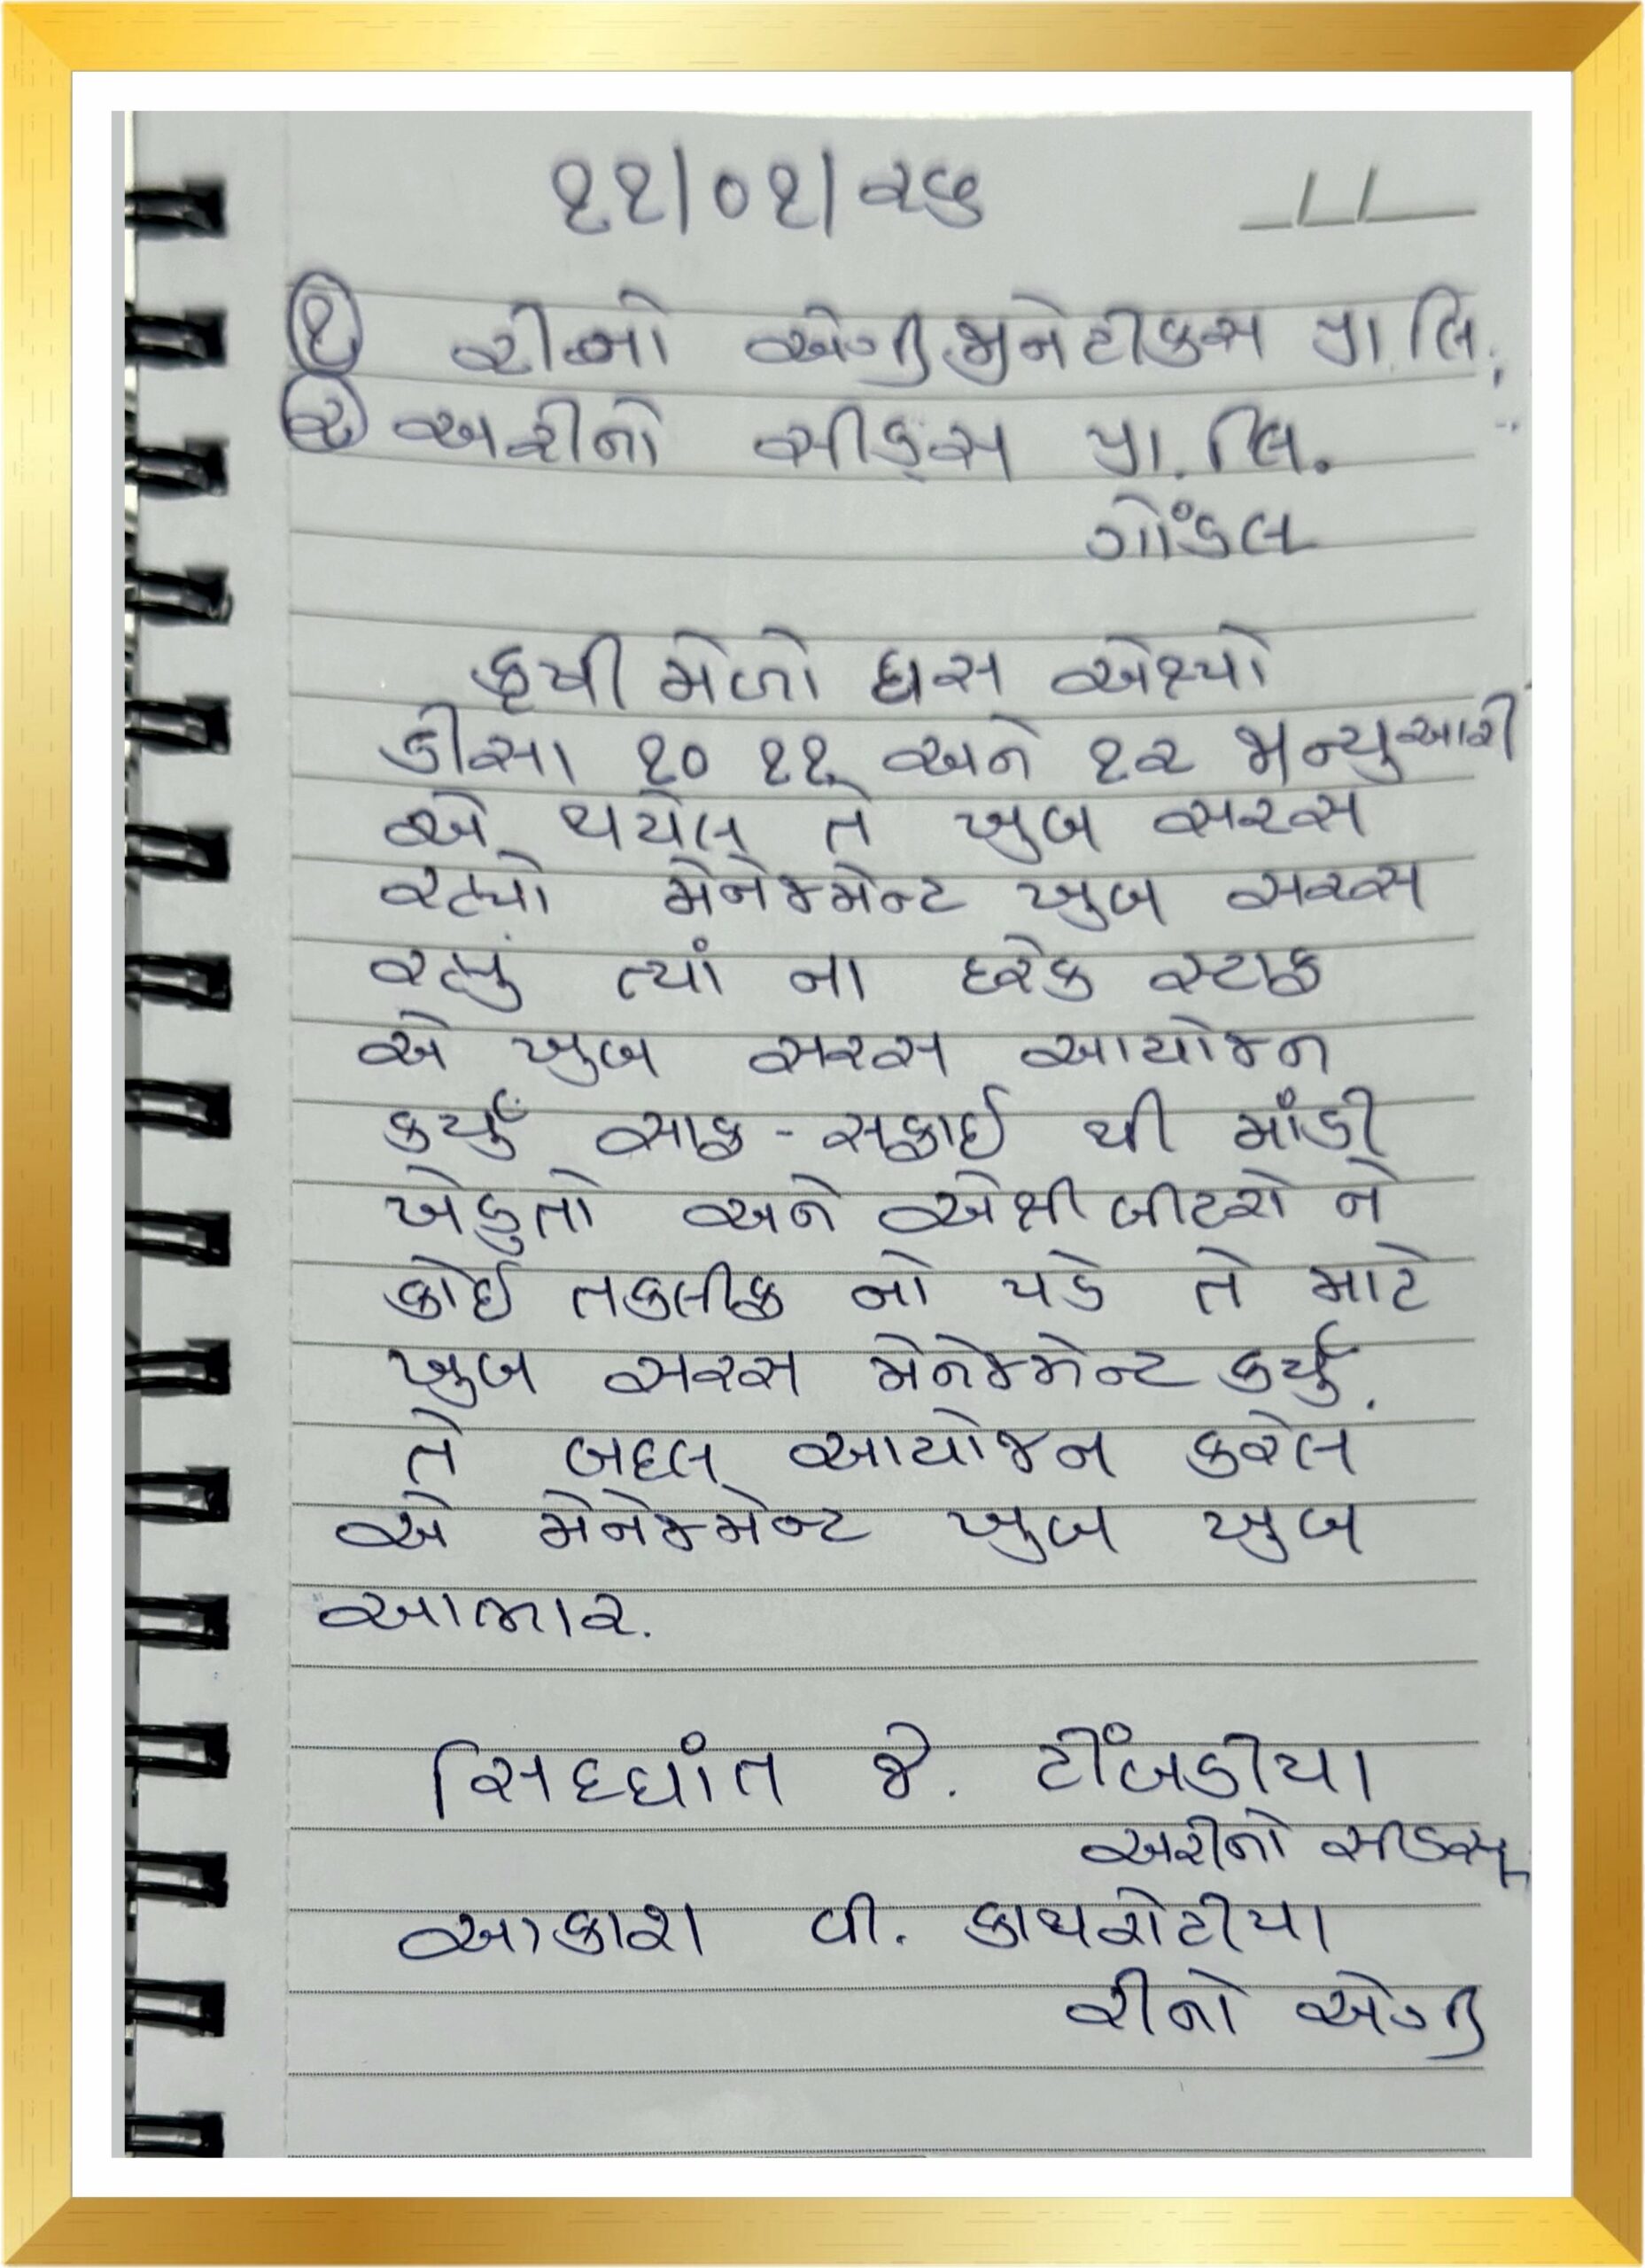 ૧૧/૦૧/૨૬
૧ રીનો એગ્રી જીનેટીકસ પ્રા.લિ.
૨ અરીનો સીડ્સ પ્રા.લિ.
ગોંડલ
કૃષી મેળો પ્લસ એક્ષ્પો
ડીસા ૧૦ ૧૧ અને ૧૨ જાન્યુઆરી
એ થયેલ તે ખુબ સરસ
રહ્યો મેનેજમેન્ટ ખુબ સરસ
રહ્યું ત્યાં ના દરેક સ્ટાફ
એ ખુબ સરસ આયોજન
કર્યું સાફ - સફાઈ થી માંડી
ખેડુતો અને એક્ષીબીટરો ને
કોઈ તકલીફ નો પડે તે માટે
ખુબ સરસ મેનેજમેન્ટ કર્યું.
તે બદલ આયોજન કરેલ
એ મેનેજમેન્ટ ખુબ ખુબ
આભાર.
સિધ્ધાંત જે. ટીંબડીયા
અરીનો સીડસ
આકાશ વી. કાથરોટીયા
રીનો એગ્રી